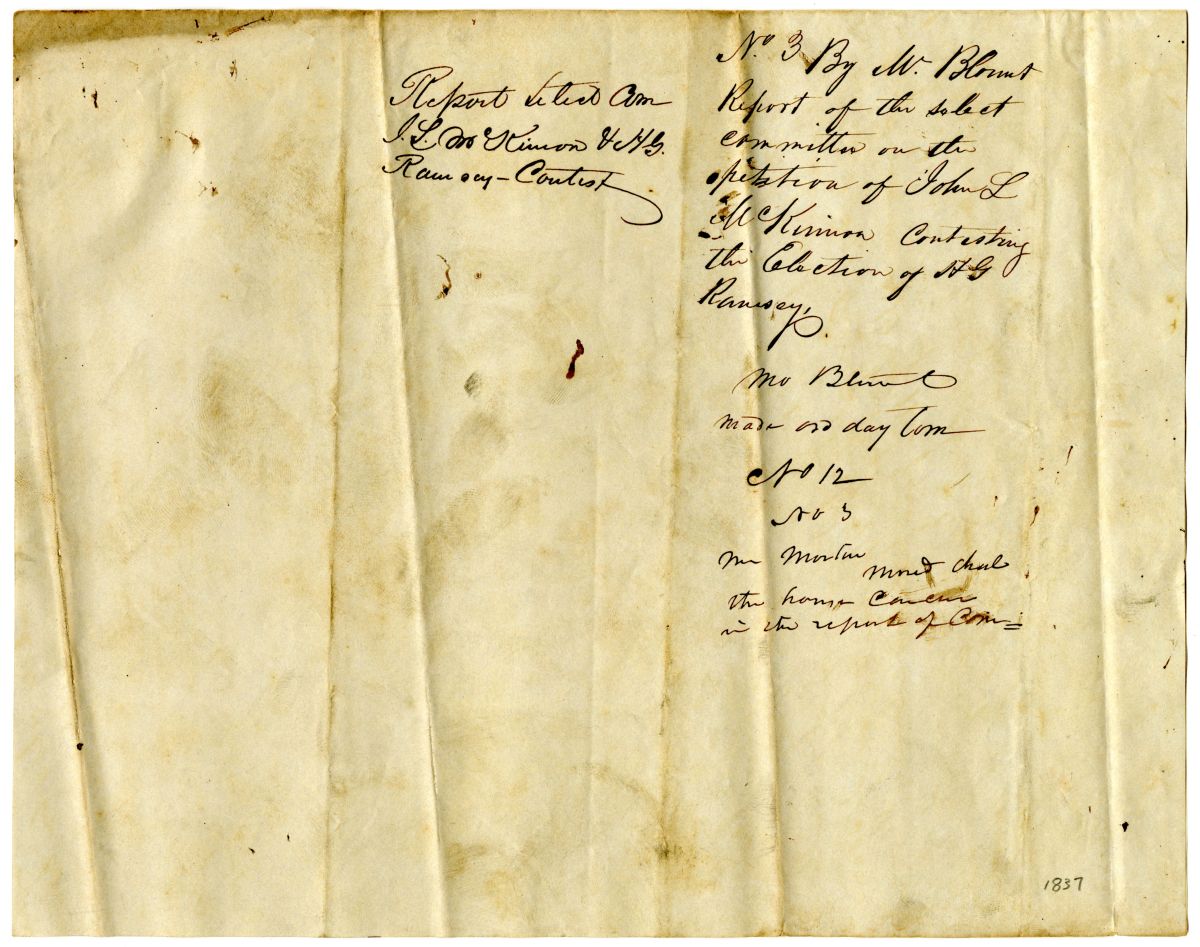 Report Select Com
J. L. McKinnon & H G.
Ramsey - Contest
No 3 By Mr. Blount
Report of the select
committee on the
petition of John L
McKinnon Contesting
the Election of H G
Ramsey,
Mr Blount
made ord day tom
No 12
No 3
Mr Morton moved that
the house Concur
in the report of Com=
1837